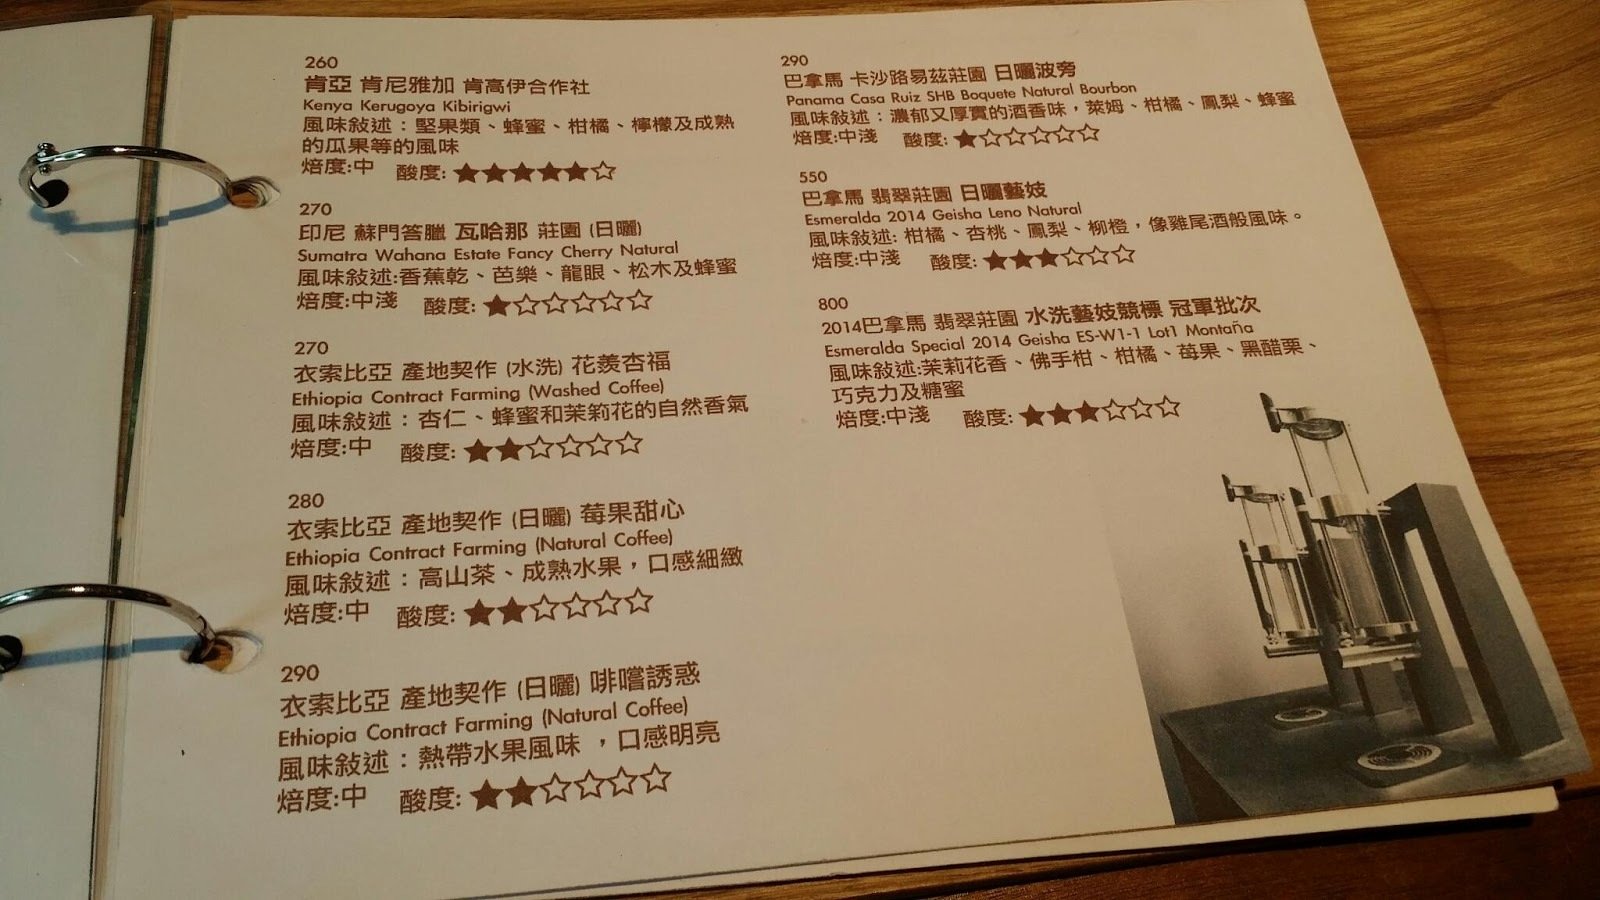 260
肯亞 肯尼雅加 肯高伊合作社
Kenya Kerugoya Kibirigwi
風味敍述：堅果類、蜂蜜、柑橘、檸檬及成熟
的瓜果等的風味
焙度:中 酸度:★★★★★☆
270
印尼 蘇門答臘 瓦哈那 莊園 (日曬)
Sumatra Wahana Estate Fancy Cherry Natural
風味敍述:香蕉乾、芭樂、龍眼、松木及蜂蜜
焙度:中淺 酸度:★☆☆☆☆☆
270
衣索比亞 產地契作 (水洗) 花羨杏福
Ethiopia Contract Farming (Washed Coffee)
風味敍述：杏仁、蜂蜜和茉莉花的自然香氣
焙度:中 酸度:★★☆☆☆☆
280
衣索比亞 產地契作 (日曬) 莓果甜心
Ethiopia Contract Farming (Natural Coffee)
風味敍述：高山茶、成熟水果，口感細緻
焙度:中 酸度:★★☆☆☆☆
290
衣索比亞 產地契作 (日曬) 啡嚐誘惑
Ethiopia Contract Farming (Natural Coffee)
風味敍述：熱帶水果風味 ，口感明亮
焙度:中 酸度:★★☆☆☆☆
290
巴拿馬 卡沙路易茲莊園 日曬波旁
Panama Casa Ruiz SHB Boquete Natural Bourbon
風味敍述：濃郁又厚實的酒香味，萊姆、柑橘、鳳梨、蜂蜜
焙度:中淺 酸度:★☆☆☆☆☆
550
巴拿馬 翡翠莊園 日曬藝妓
Esmeralda 2014 Geisha Leno Natural
風味敍述: 柑橘、杏桃、鳳梨、柳橙，像雞尾酒般風味。
焙度:中淺 酸度:★★★☆☆☆
800
2014巴拿馬 翡翠莊園 水洗藝妓競標 冠軍批次
Esmeralda Special 2014 Geisha ES-W1-1 Lot1 Montaña
風味敍述:茉莉花香、佛手柑、柑橘、莓果、黑醋栗、
巧克力及糖蜜
焙度:中淺 酸度:★★★☆☆☆